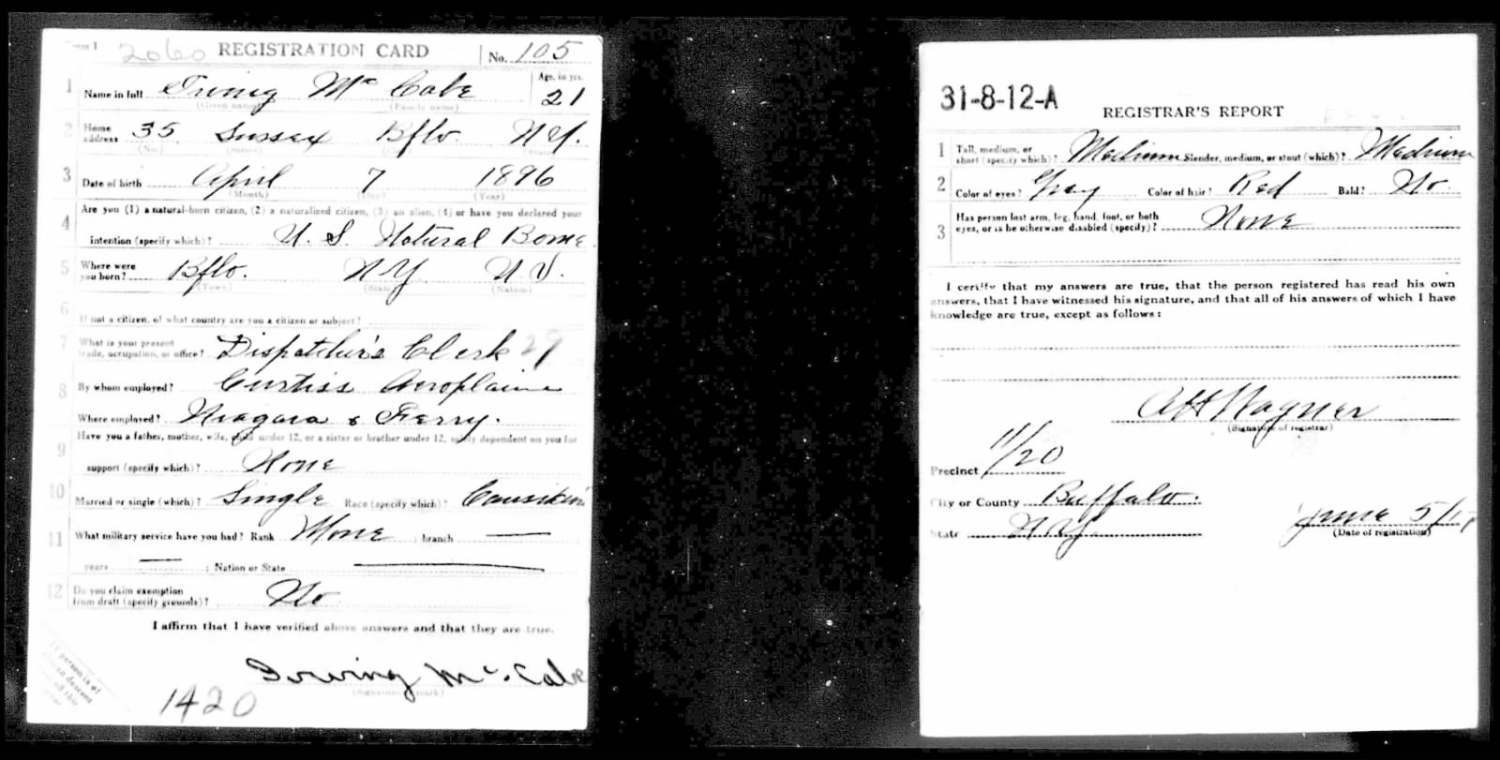 2060 REGISTRATION CARD No. 105
1 Name in full Irving Mc Cabe Age, in yrs. 21
(Given name) (Family name)
2 Home address 35 Sussex Bflo. N.Y.
(No.) (Street) (State)
3 Date of birth April 7 1896
(Month) (Day) (Year)
4 Are you (1) a natural-born citizen, (2) a naturalized citizen, (3) an alien, (4) or have you declared your
intention (specify which)? U. S. Natural Borne
5 Where were you born? Bflo. N Y U S.
(Town) (State) (Nation)
6 If not a citizen, of what country are you a citizen or subject?
7 What is your present trade, occupation, or office? Dispatcher's Clerk 29
8 By whom employed? Curtiss Aeroplaine
Where employed? Niagara & Ferry.
9 Have you a father, mother, wife, child under 12, or a sister or brother under 12, solely dependent on you for
support (specify which)? None
10 Married or single (which)? Single Race (specify which)?
11 What military service have you had? Rank None branch —
years — ; Nation or State —
12 Do you claim exemption from draft (specify grounds)? No
I affirm that I have verified above answers and that they are true.
Irving Mc. Cabe
(Signature or mark)
1420
31-8-12-A
REGISTRAR'S REPORT
1 Tall, medium, or short (specify which)? Medium Slender, medium, or stout (which)? Medium
2 Color of eyes? Gray Color of hair? Red Bald? No
3 Has person lost arm, leg, hand, foot, or both eyes, or is he otherwise disabled (specify)? None
I certify that my answers are true, that the person registered has read his own
answers, that I have witnessed his signature, and that all of his answers of which I have
knowledge are true, except as follows:
Wagner
(Signature of registrar)
Precinct 11/20
City or County Buffalo.
State N.Y.
June 5/17
(Date of registration)